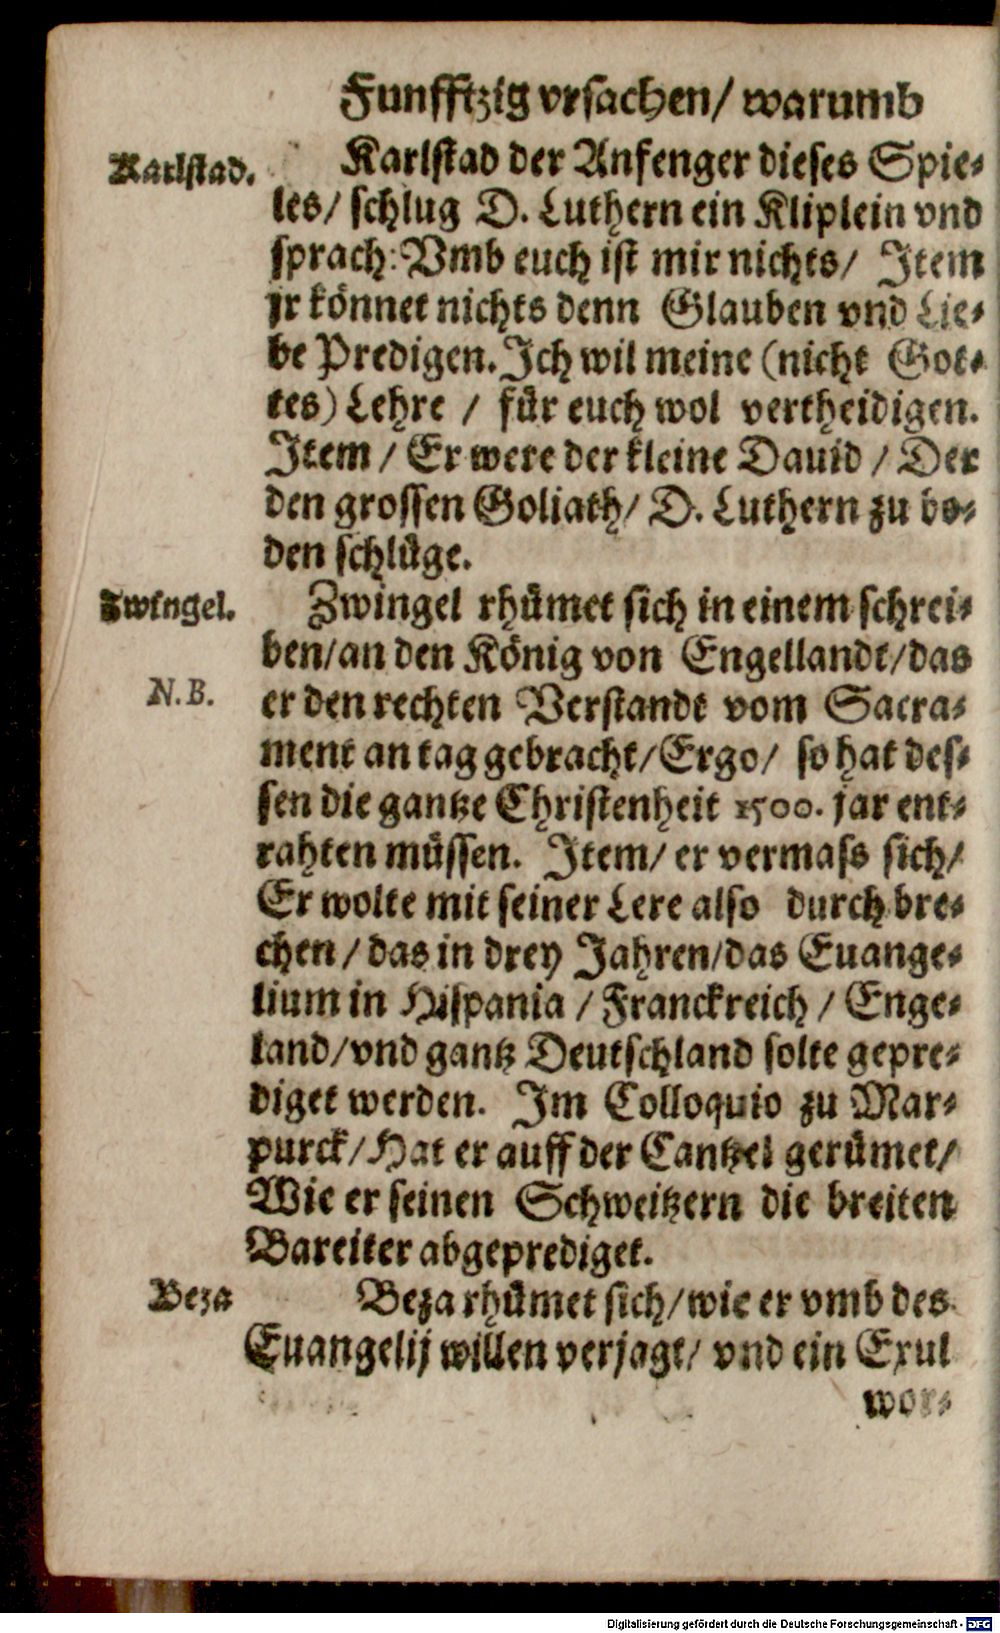 Funfftzig vrsachen/ warumb
Karlstad.
Karlstad der Anfenger dieses Spie-
les/ schlug D. Luthern ein Kliplein vnd
sprach: Vmb euch ist mir nichts/ Item
jr könnet nichts denn Glauben vnd Lie-
be Predigen. Ich wil meine (nicht Got-
tes) Lehre / für euch wol vertheidigen.
Item / Er were der kleine Dauid / Der
den grossen Goliath/ D. Luthern zu bo-
den schlüge.
Zwingel.
Zwingel rhümet sich in einem schrei-
ben/an den König von Engellandt/das
N.B.
er den rechten Verstandt vom Sacra-
ment an tag gebracht/Ergo/ so hat des-
sen die gantze Christenheit 1500. jar ent-
rahten müssen. Item/ er vermass sich/
Er wolte mit seiner Lere also durch bre-
chen / das in drey Jahren/das Euange-
lium in Hispania / Franckreich / Enge-
land/vnd gantz Deutschland solte gepre-
diget werden. Im Colloquio zu Mar-
purck/Hat er auff der Cantzel gerümet/
Wie er seinen Schweitzern die breiten
Bareiter abgeprediget.
Beza
Beza rhümet sich/wie er vmb des
Euangelij willen verjagt/ vnd ein Exul
wor-
Digitalisierung gefördert durch die Deutsche Forschungsgemeinschaft - DFG